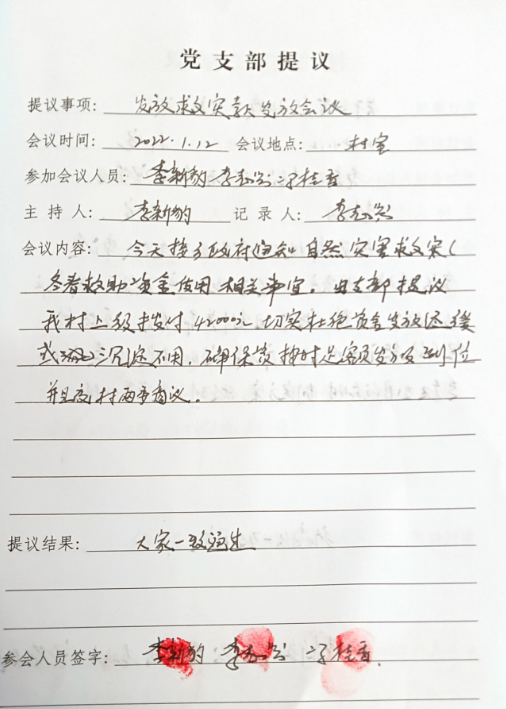 党支部提议
提议事项: 发放救灾款发放会议
会议时间: 2022.1.12 会议地点: 村室
参加会议人员: 李新豹 李志 桂香
主持人: 李新豹 记录人: 李志
会议内容: 今天接乡政府通知自然灾害救灾(
冬春救助资金使用相关事宜,由支部提议
我村上级拨付42000元 切实杜绝资金发放迟缓
或 沉淀不用,确保资 按时足额发放到位
并且 村两委商议。
提议结果: 大家一致通过
参会人员签字: 李新豹 李志 桂香.